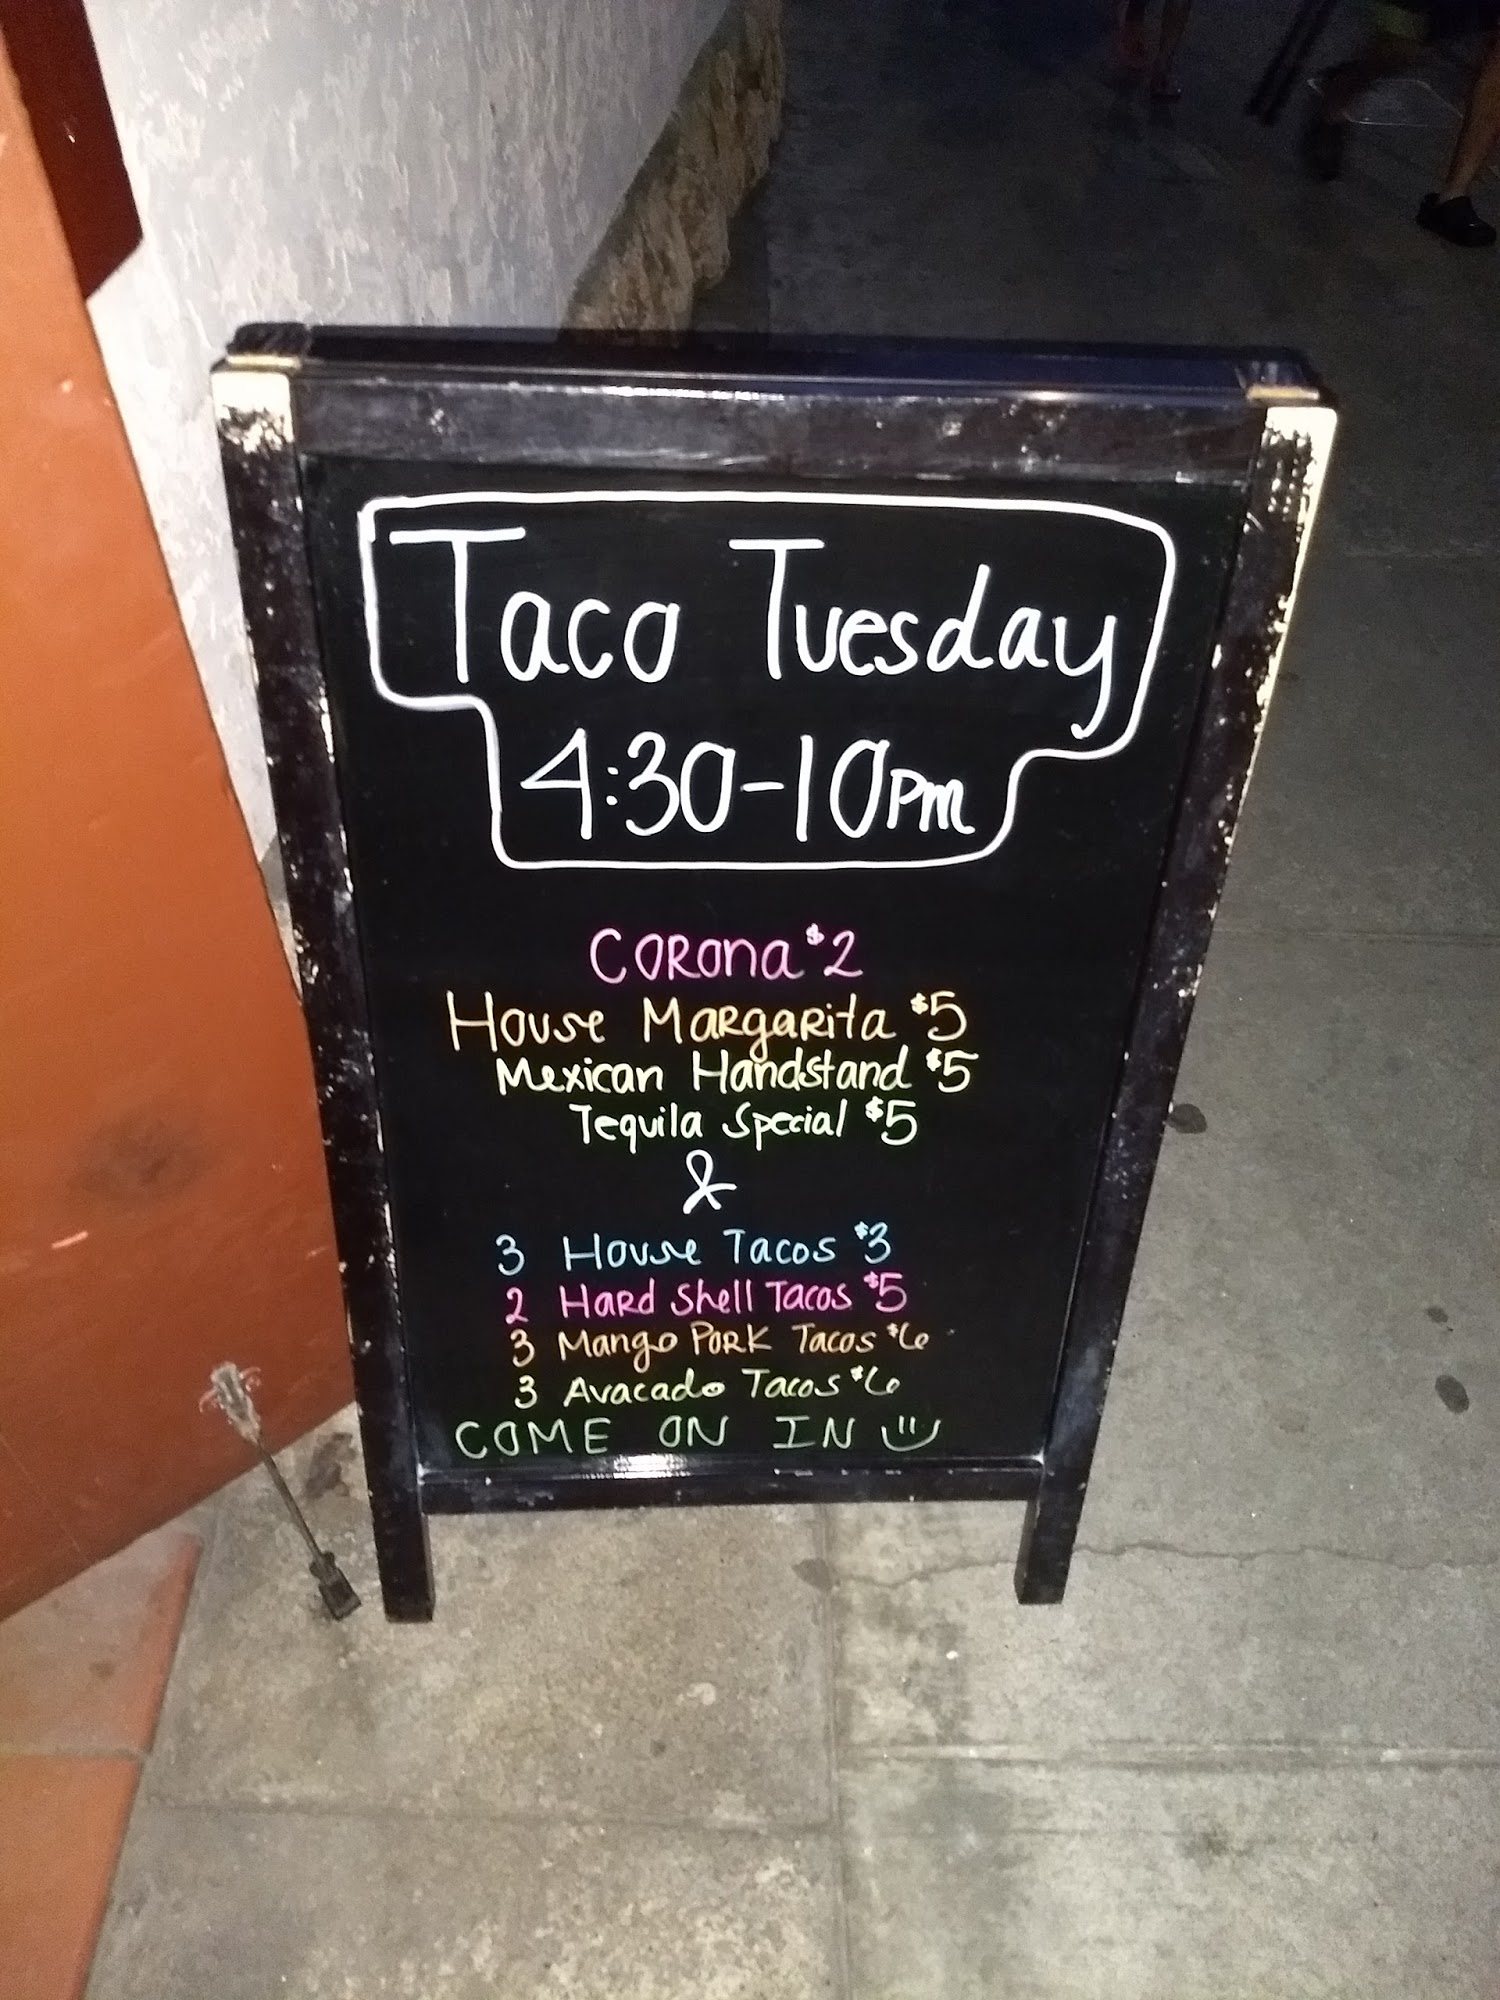 Taco Tuesday
4:30-10pm
Corona $2
House Margarita $5
Mexican Handstand $5
Tequila Special $5
&
3 House Tacos $3
2 Hard Shell Tacos $5
3 Mango Pork Tacos $6
3 Avacado Tacos $6
COME ON IN